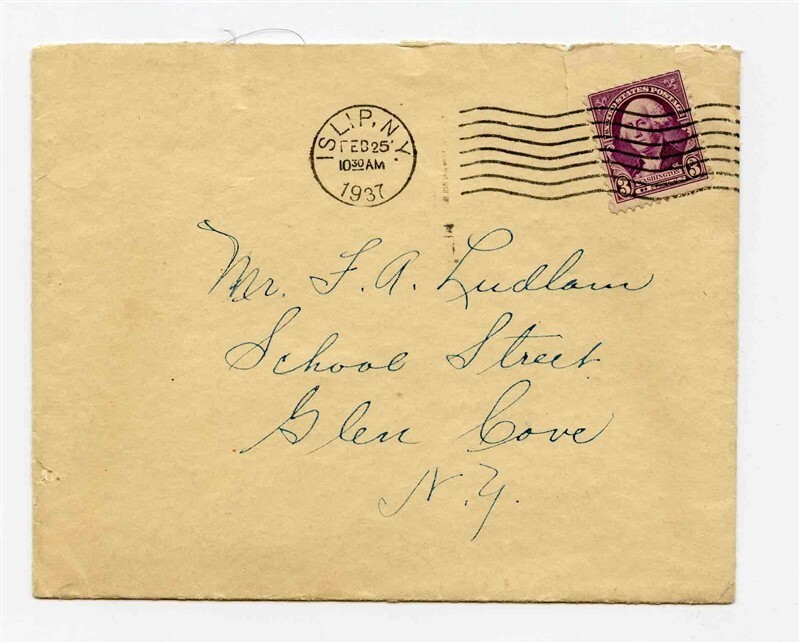 ISLIP, N.Y.
FEB 25
10 30 AM
1937
UNITED STATES POSTAGE
3 WASHINGTON 3
Mr. F. A. Ludlam
School Street
Glen Cove
N.Y.